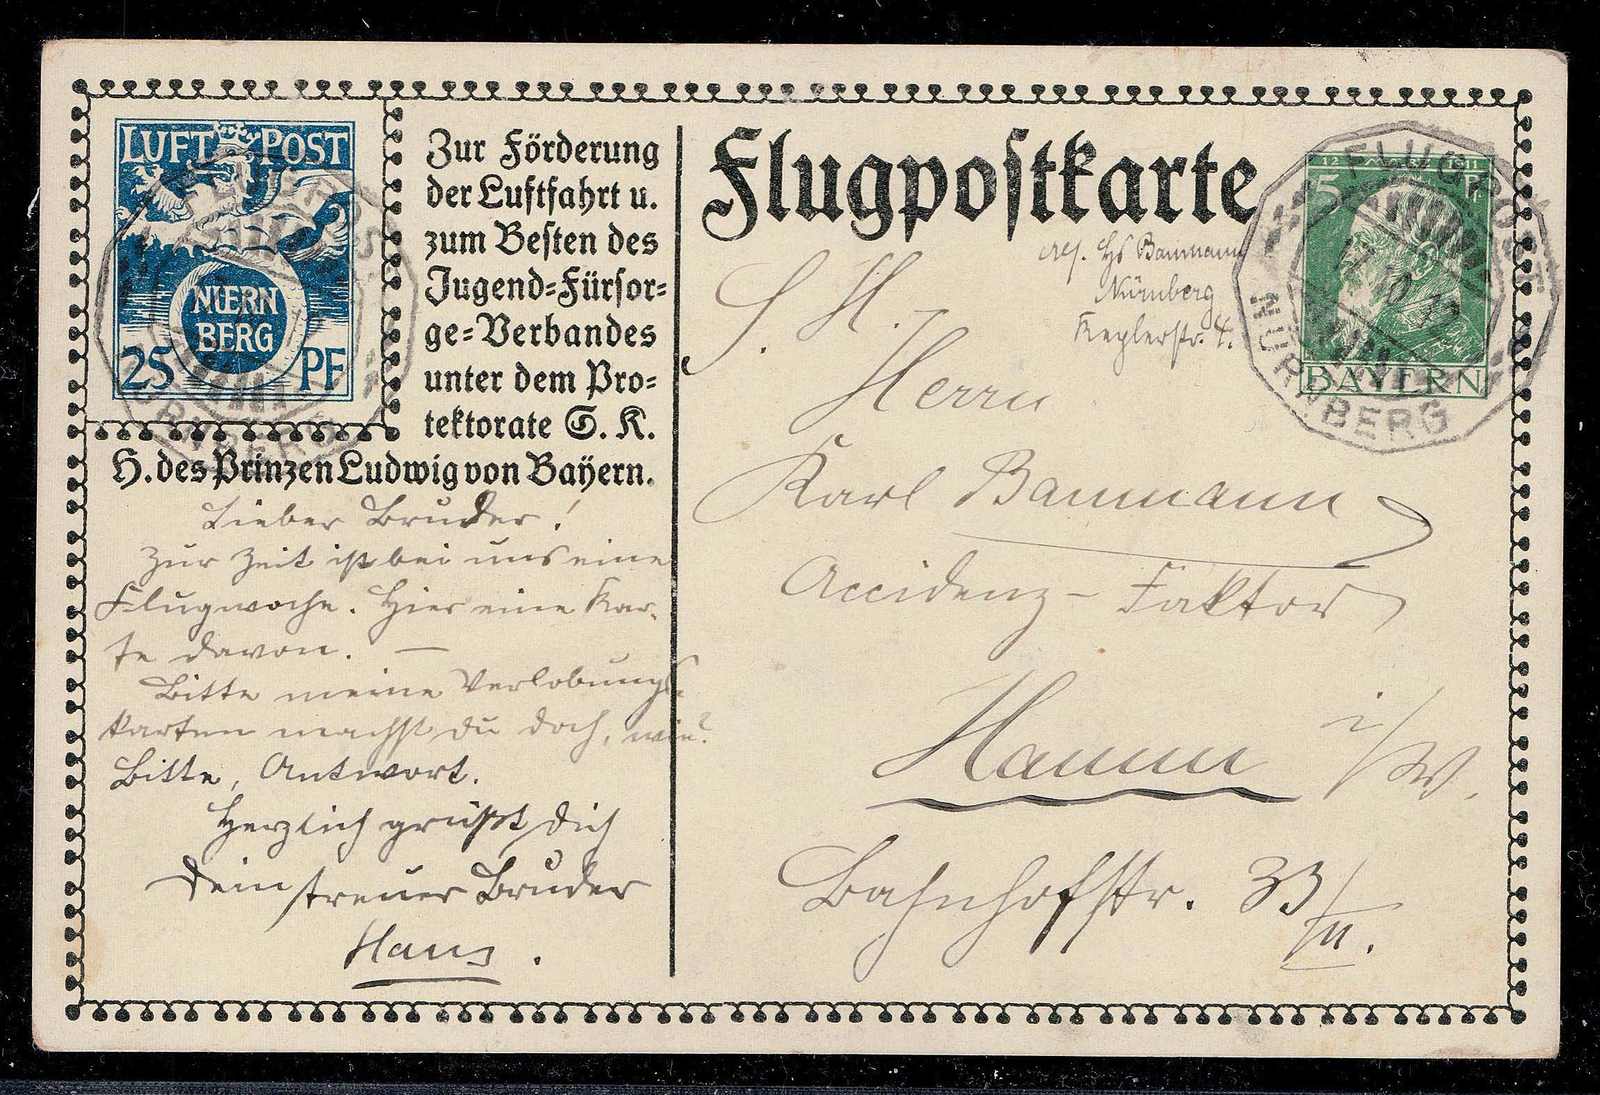 LUFT POST
NŒRN
BERG
25 PF
Zur Förderung
der Luftfahrt u.
zum Besten des
Jugend=Fürsor=
ge=Verbandes
unter dem Pro=
tektorate S. K.
H. des Prinzen Ludwig von Bayern.
Lieber Bruder!
Zur Zeit ist bei uns eine
Flugwoche. Hier eine Kar-
te davon. —
Bitte meine Verlobungs-
karten machst du doch, wie?
Bitte, Antwort.
Herzlich grüßt dich
Dein treuer Bruder
Hans.
Flugpostkarte
Abs. Hs Baumann
Nürnberg
Keplerstr. 4.
12 1911
5 Pf
BAYERN
FLUGPOST
NÜRNBERG
S. H.
Herrn
Karl Baumann
Accidenz-Faktor
Hamm i/W.
Bahnhofstr. 33/II.